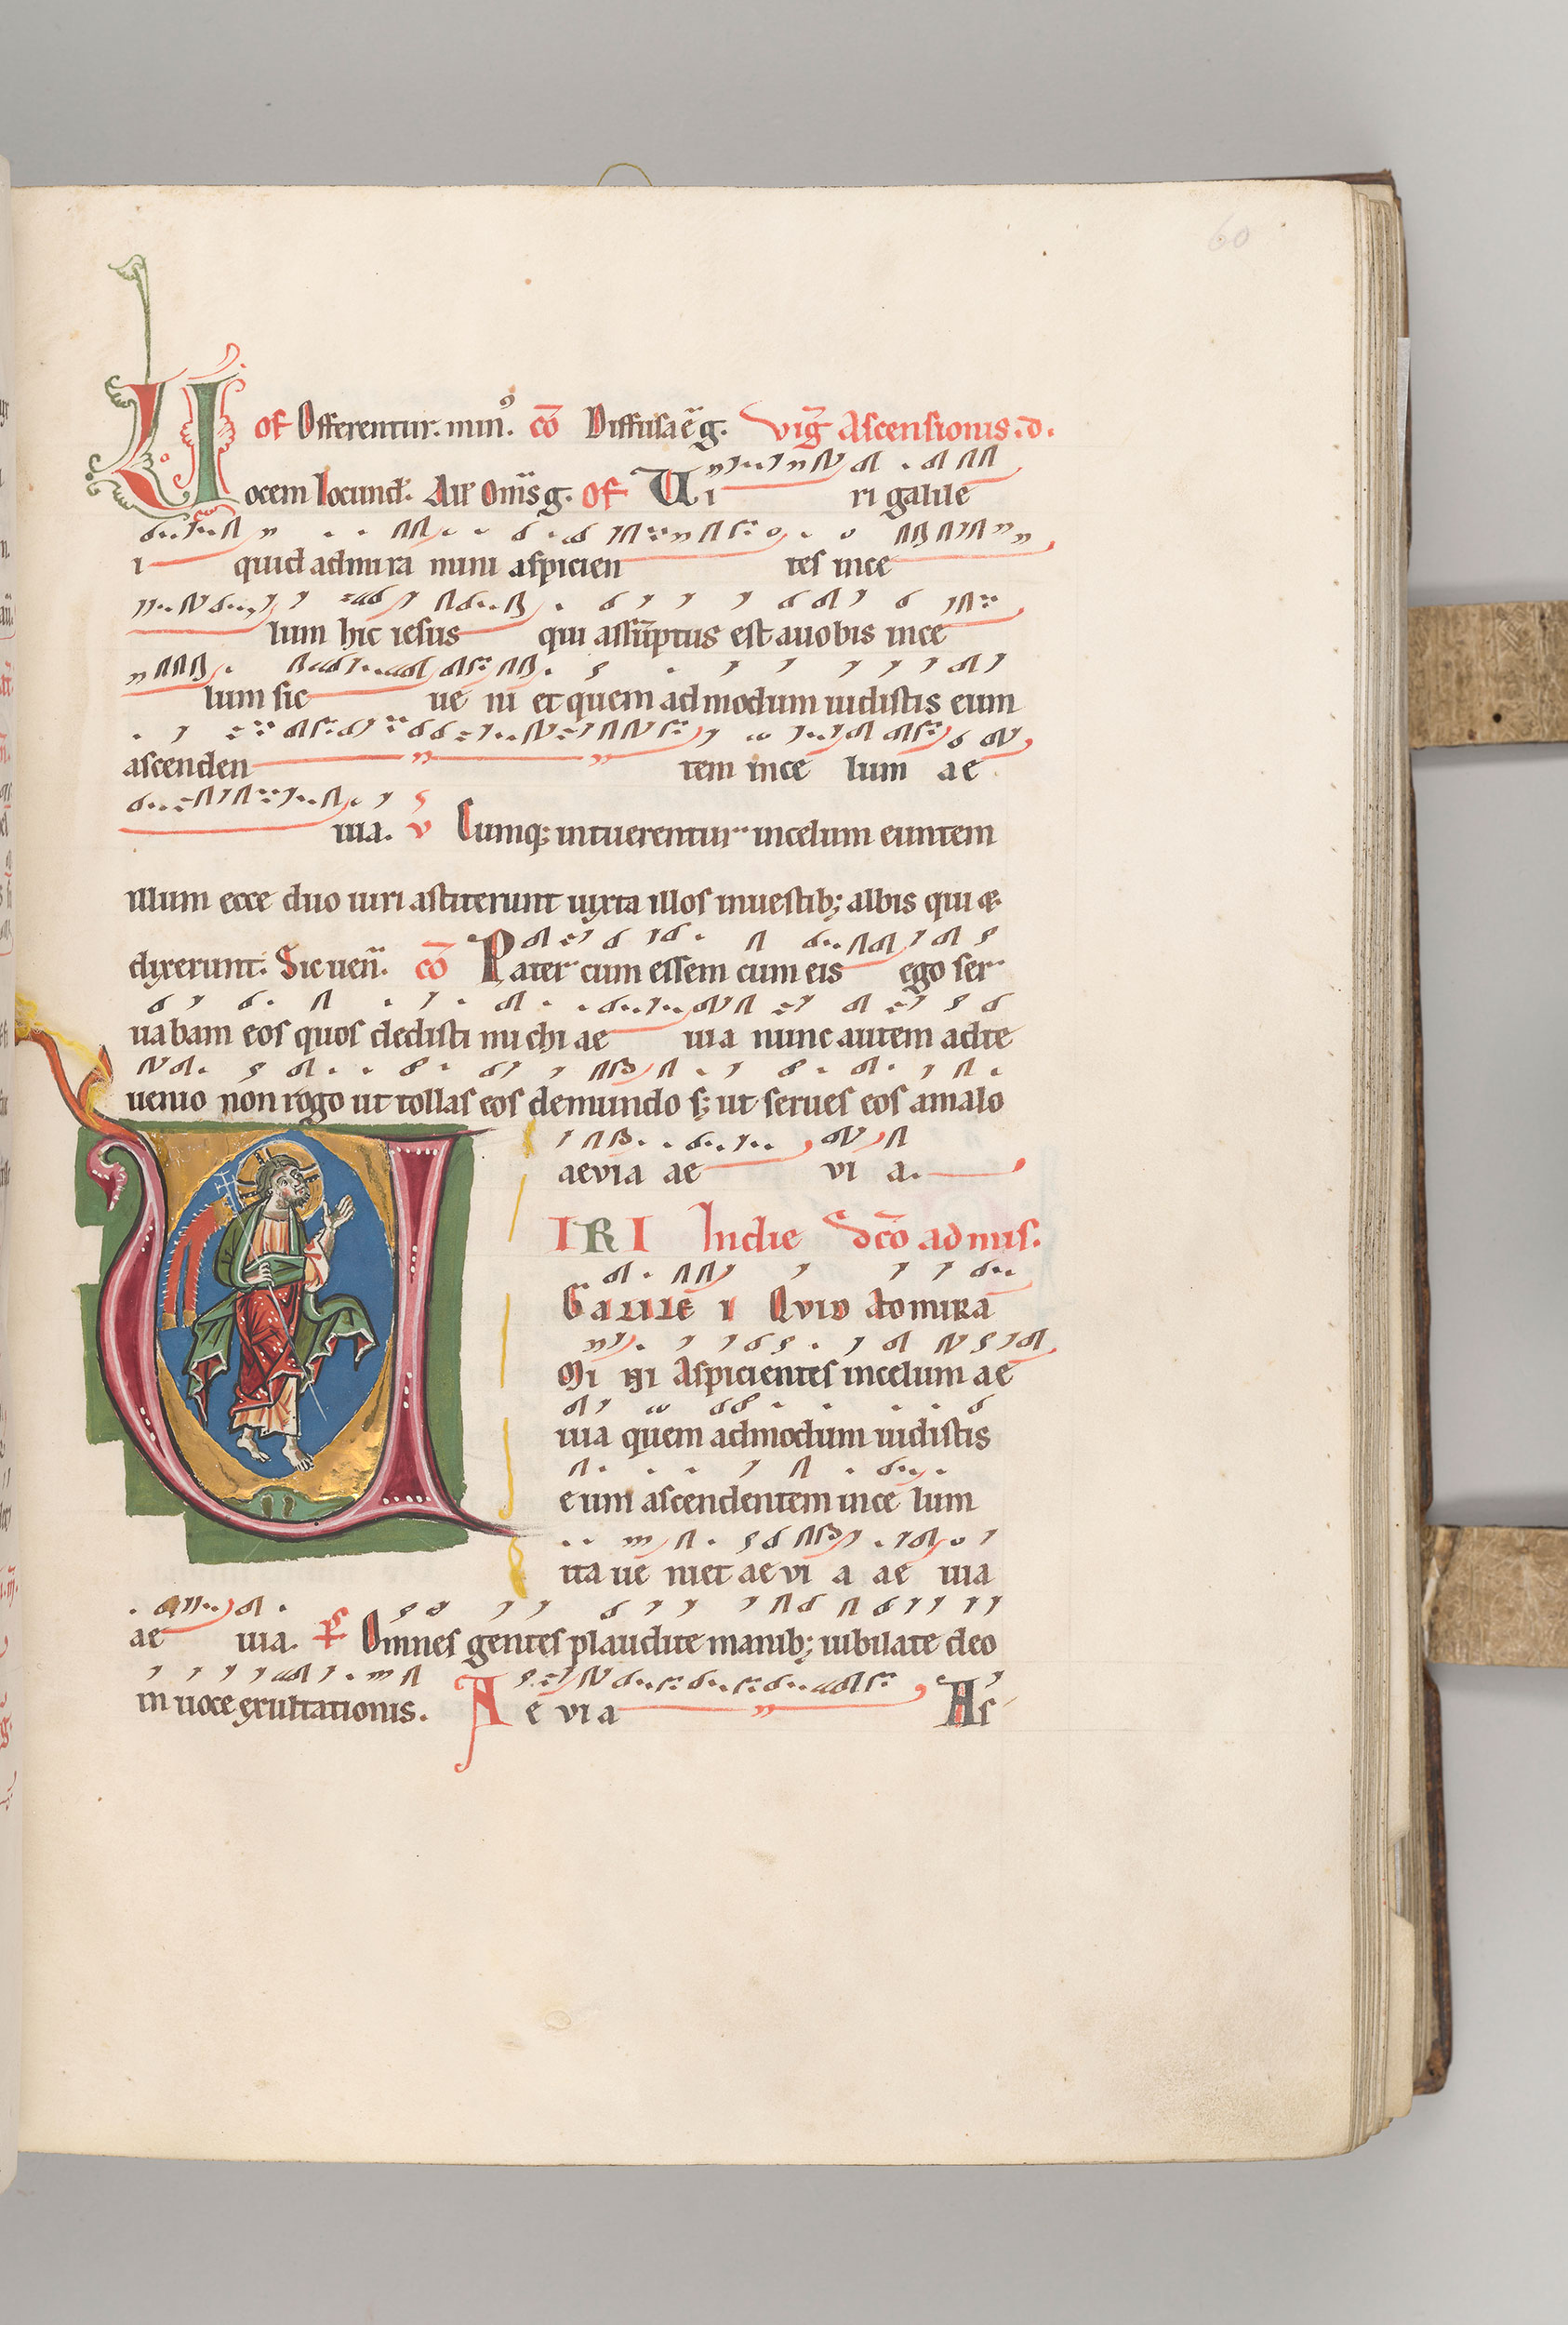 60
of Offerentur. min⁹. cō Diffusa ē g. Vig̅ Ascensionis. d.
Uocem Iocund. All' Om̄s g. of Ui ri galile
i quid admira mini aspicien tes ince
lum hic iesus qui assūptus est auobis ince
lum sic ue ni et quem admodum uidistis eum
ascenden tem ince lum ae
uia. v Cumq; intuerentur incelum euntem
illum ecce duo uiri astiterunt iuxta illos inuestib; albis qui &
dixerunt. Sic uen̄. cō Pater cum essem cum eis ego ser
uabam eos quos dedisti michi ae uia nunc autem adte
uenio non rogo ut tollas eos demundo s; ut serues eos amalo
aevia ae vi a.
UIRI Indie sc̄o admis.
Galile i Quid admira
mi ni aspicientes incelum ae
uia quem admodum uidistis
eum ascendentem ince lum
ita ue niet ae vi a ae uia
ae uia. Ps Omnes gentes plaudite manib; iubilate deo
in uoce exultationis. A e vi a As